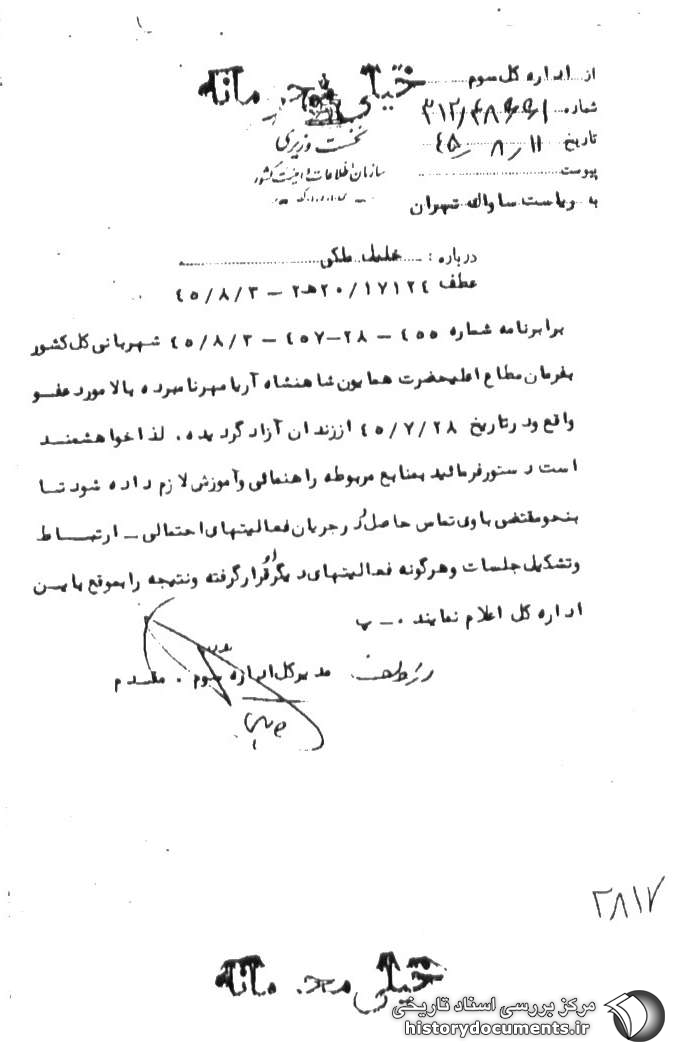 خیلی محرمانه
از اداره کل سوم
شماره
تاریخ ۱۱ / ۸ / ۴۵
پیوست
نخست وزیری
سازمان اطلاعات و امنیت کشور
به ریاست ساواک تهران
درباره : خلیل ملکی
عطف ۲۰/۱۷۱۲۴ه۲ – ۴۵/۸/۳
برابرنامه شماره ۴۵۵ – ۲۸–۴۵۷ – ۴۵/۸/۳ شهربانی کل کشور
بفرمان مطاع اعلیحضرت همایون شاهنشاه آریامهر نامبرده بالا مورد عفو
واقع ودرتاریخ ۴۵/۷/۲۸ اززندان آزاد گردیده. لذا خواهشمند
است دستورفرمائید بمنابع مربوطه راهنمائی وآموزش لازم داده شود تا
بنحومقتضی باوی تماس حاصل درجریان فعالیتهای احتمالی – ارتباط
وتشکیل جلسات وهرگونه فعالیتهای دیگر او قرارگرفته ونتیجه رابموقع باین
اداره کل اعلام نمایند ۰ – پ
مدیرکل اداره سوم . مقدم
۲۸۱۷
خیلی محرمانه
مرکز بررسی اسناد تاریخی
historydocuments.ir